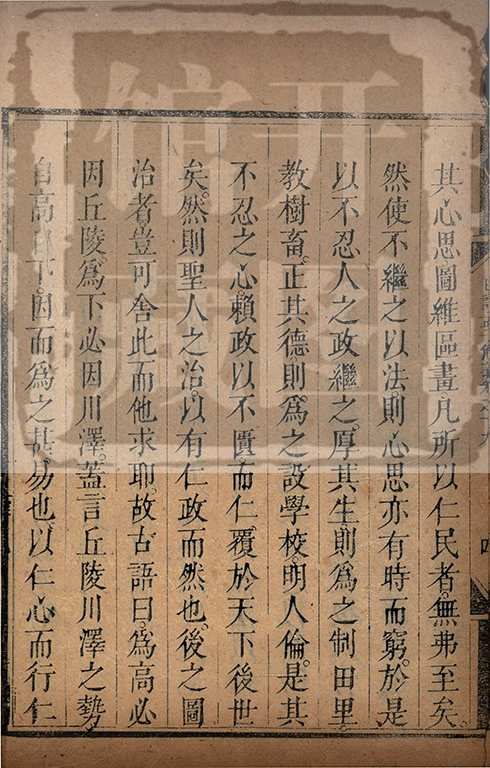 其心思圖維區畫凡所以仁民者無弗至矣
然使不繼之以法則心思亦有時而窮於是
以不忍人之政繼之厚其生則爲之制田里
教樹畜正其德則爲之設學校明人倫是其
不忍之心賴政以不匱而仁覆於天下後世
矣然則聖人之治以有仁政而然也後之圖
治者豈可舍此而他求耶故古語曰爲高必
因丘陵爲下必因川澤蓋言丘陵川澤之勢
自高自下因而爲之甚易也以仁心而行仁
四